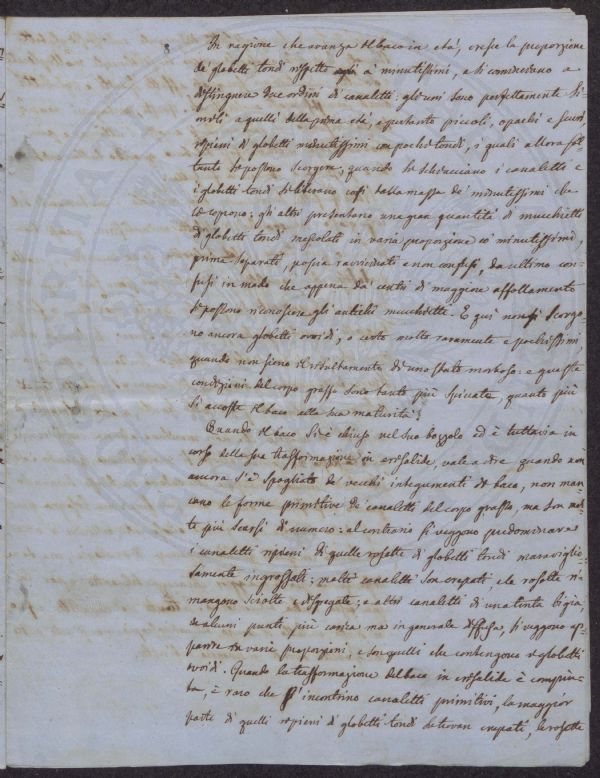 In ragione che avanza il baco in età, cresce la proporzione
de' globetti tondi rispetto a' minutissimi, e si cominciano a
distinguere due ordini di canaletti: gli uni sono perfettamente si-
mili a quelli della prima età, e pertanto piccoli, opachi e scuri
ripieni di globetti minutissimi con pochi tondi, i quali allora sol-
tanto si possono scorgere, quando si schiacciano i canaletti e
i globetti tondi si liberano così dalla massa de' minutissimi che
li coprono: gli altri presentano una gran quantità di mucchietti
di globetti tondi mescolati in varia proporzione co' minutissimi,
prima separati, poscia ravvicinati e non confusi, da ultimo con-
fusi in modo che appena da' centri di maggiore affollamento
si possono riconoscere gli antichi mucchietti. E qui non si scorgo-
no ancora globetti ovoidi, o certo molto raramente e pochissimi
quando non sieno il risultamento di uno stato morboso: e queste
condizioni del corpo grasso sono tanto più spiccate, quanto più
si accosta il baco alla sua maturità.
Quando il baco si è chiuso nel suo bozzolo ed è tuttavia in
corso della sua trasformazione in crisalide, vale a dire quando non
ancora s'è spogliato de' vecchi integumenti di baco, non man-
cano le forme primitive de' canaletti del corpo grasso, ma son mol-
to più scarsi di numero: al contrario si veggono predominare
i canaletti ripieni di quelle rosette di globetti tondi maraviglio-
samente ingrossati; molti canaletti son crepati, e le rosette ri-
mangono sciolte e disgregate; e altri canaletti di una tinta bigia,
in alcuni punti più carica ma in generale diffusa, si veggono ap-
parire in varie proporzioni, e son quelli che contengono i globetti
ovoidi. Quando la trasformazione del baco in crisalide è compiu-
ta, è raro che s'incontrino canaletti primitivi, la maggior
parte di quelli ripieni di globetti tondi si trovan crepati, le rosette